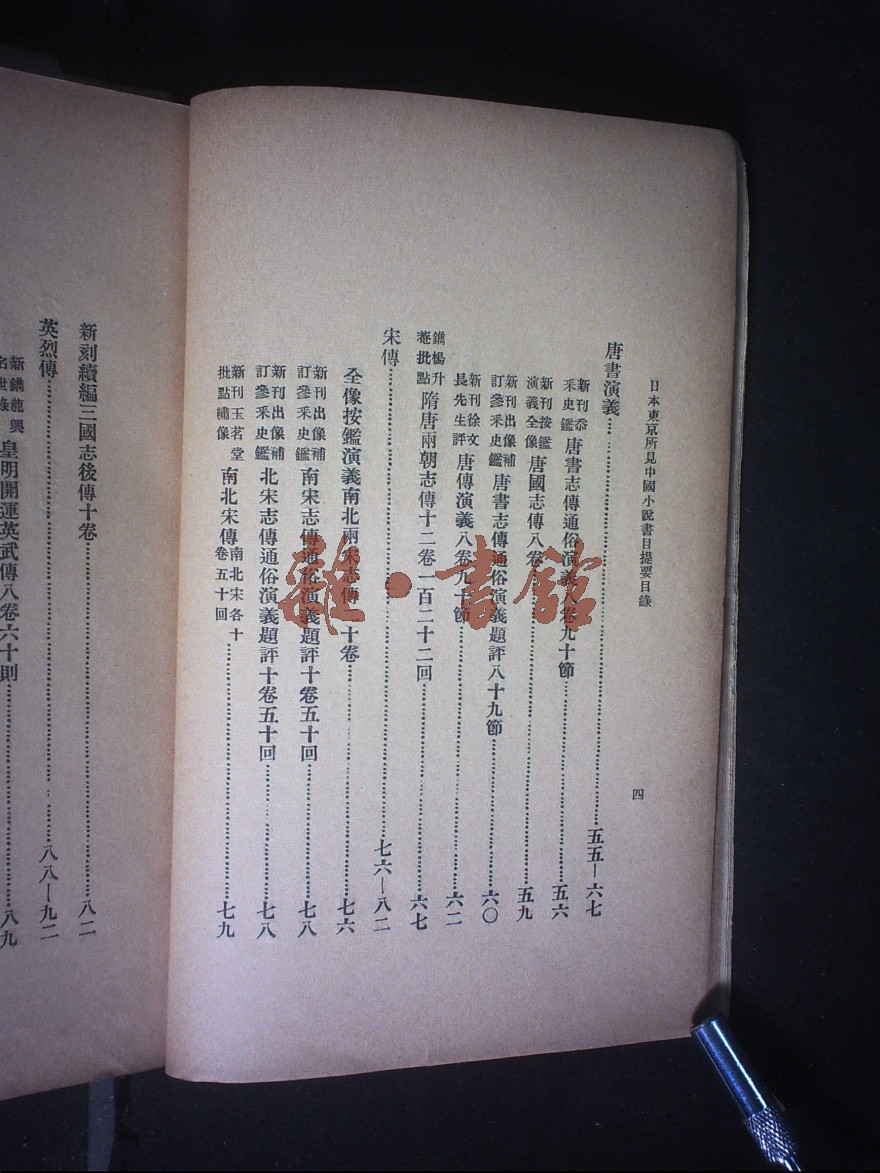 日本東京所見中國小說書目提要目錄
四
唐書演義……五五—六七
新刊叅采史鑑唐書志傳通俗演義八卷九十節……五六
新刊按鑑演義全像唐國志傳八卷……五九
新刊出像補訂參采史鑑唐書志傳通俗演義題評八十九節……六〇
新刊徐文長先生評唐傳演義八卷九十節……六二
鐫楊升菴批點隋唐兩朝志傳十二卷一百二十二回……六七
宋傳……七六—八二
全像按鑑演義南北兩宋志傳二十卷……七六
新刊出像補訂參采史鑑南宋志傳通俗演義題評十卷五十回……七八
新刊出像補訂參采史鑑北宋志傳通俗演義題評十卷五十回……七八
新刊玉茗堂批點繡像南北宋傳南北宋各十卷五十回……七九
新刻續編三國志後傳十卷……八二
英烈傳……八八—九二
新鐫龍興名世錄皇明開運英武傳八卷六十則……八九
雜·書館